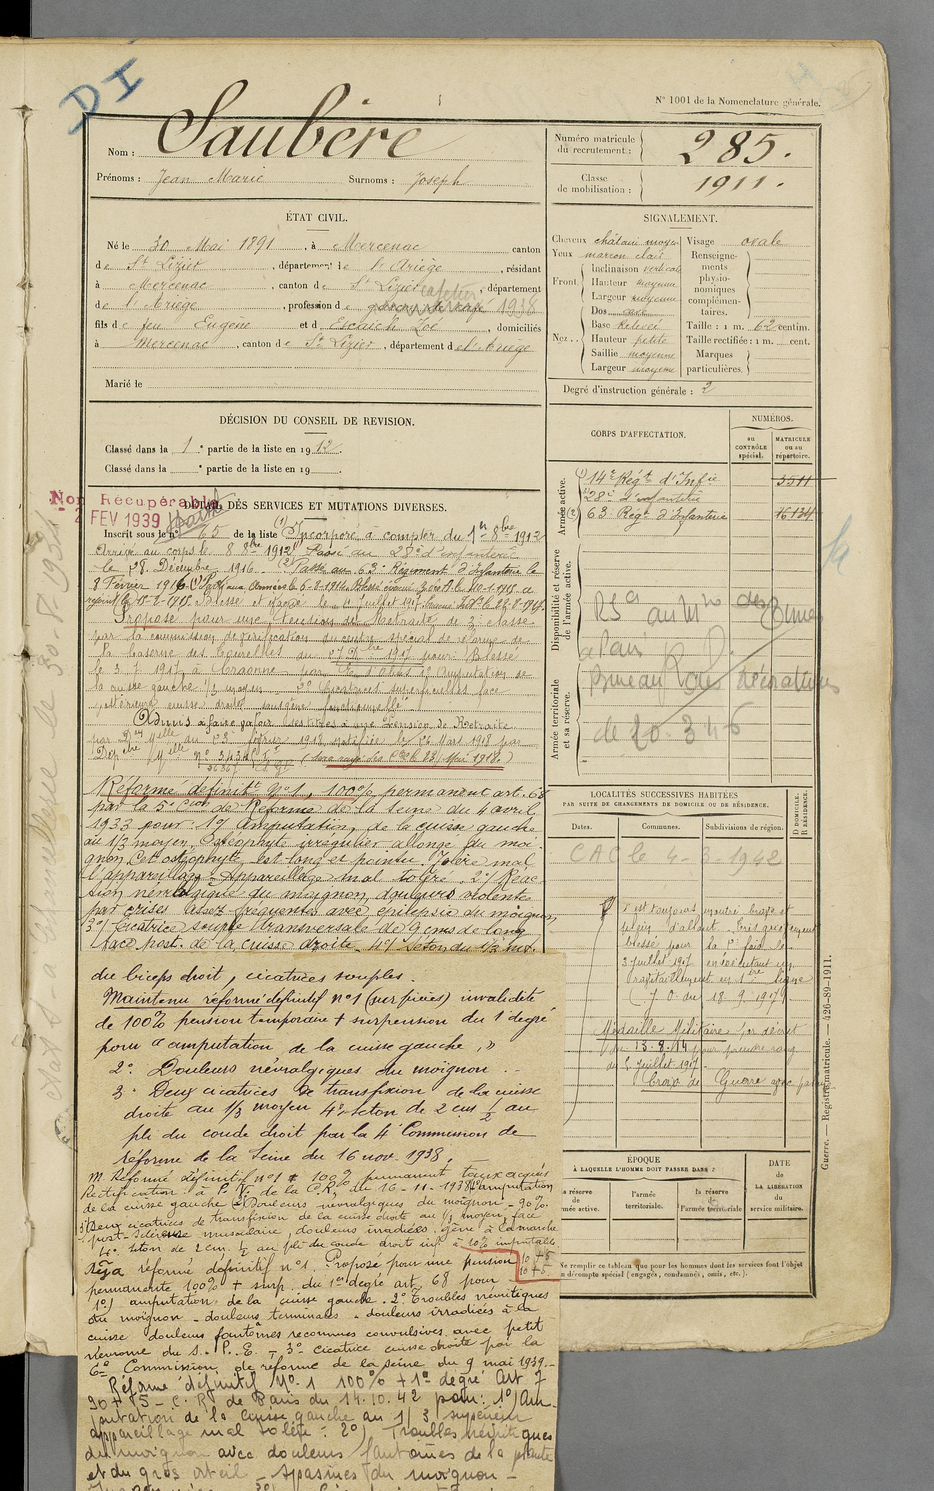 DI
N° 1001 de la Nomenclature générale.
Nom : Saubère
Prénoms : Jean Marie Surnoms : Joseph
Numéro matricule du recrutement : 285.
Classe de mobilisation : 1911.
ÉTAT CIVIL.
Né le 30 Mai 1891, à Mercenac canton
de St Lizier, département de l'Ariège, résidant
à Mercenac, canton de St Lizier, département
de l'Ariège, profession de garçon de café cafetier 1938
fils de feu Eugène et de Escaich Zoé, domiciliés
à Mercenac, canton de St Lizier, département de l'Ariège
Marié le
SIGNALEMENT.
Cheveux châtain moyen Visage ovale
Yeux marron clair
Front. Inclinaison verticale
Hauteur moyenne
Largeur moyenne
Nez. Dos
Base relevée
Hauteur petite
Saillie moyenne
Largeur moyenne
Renseignements physionomiques complémentaires.
Taille : 1 m. 62 centim.
Taille rectifiée : 1 m. cent.
Marques particulières.
Degré d'instruction générale : 2
DÉCISION DU CONSEIL DE REVISION.
Classé dans la 1e partie de la liste en 1912.
Classé dans la e partie de la liste en 19
CORPS D'AFFECTATION.
NUMÉROS.
au CONTRÔLE spécial.
MATRICULE ou au répertoire.
Armée active.
(1) 14e Régt d'Infie 3511
28e d'infanterie
(2) 63 Régt d'Infanterie 16134
Disponibilité et réserve de l'armée active.
Armée territoriale et sa réserve.
à Paris
de 20.346
Non Récupérable
2 FEV 1939
DÉTAIL DES SERVICES ET MUTATIONS DIVERSES.
Inscrit sous le n° 65 de la liste (1) Incorporé à compter du 1er 8bre 1912
Arrivé au corps le 8 8bre 1912 Passé au 28e d'infanterie
le 28 Décembre 1916. (2) Passé au 63e Régiment d'Infanterie le
8 Février 1916
Proposé pour une Pension de Retraite de 3e classe
par la commission de vérification du centre spécial de réforme de
la Caserne des Tourelles du 27 1917 pour : Blessé
le 3.7.1917 à Craonne par Amputation de
la cuisse gauche 1/3 moyen. 2° Cicatrices superficielles face
postérieure cuisse droite sans gêne fonctionnelle.
Admis à faire valoir ses titres à une Pension de Retraite
1918, notifiée le 26 Mars 1918 par
(sera rayé des Ctes le 23 Mai 1918.)
Réformé définitt n°1, 100%, permanent art. 68
par la 5e Cion de Réforme de la Seine du 4 avril
1933 pour : 1°/ amputation, de la cuisse gauche
au 1/3 moyen, Ostéophyte irrégulier allongé du moi-
gnon. Cet ostéophyte est long et pointu. Tolère mal
l'appareillage. Appareillage mal toléré. 2°/ Réac-
tion névralgique du moignon, douleurs violentes
par crises assez fréquentes avec épilepsie du moignon,
3°/ Cicatrice souple transversale de 9 cms de long
face post. de la cuisse droite. 4°/ Séton du 1/3 inf.
du biceps droit, cicatrices souples.
Maintenu réformé définitif n°1 (sur pièces) invalidité
de 100% pension temporaire + surpension du 1 degré
pour "amputation de la cuisse gauche,"
2° Douleurs névralgiques du moignon
3° Deux cicatrices de transfixion de la cuisse
droite au 1/3 moyen 4° séton de 2 cm 1/2 au
pli du coude droit par la 4e Commission de
réforme de la Seine du 16 nov. 1938.
M. Réformé définitif n°1 100% permanent taux acquis
Rectification à P.V. de la C.R. du 16-11-1938 1° amputation
de la cuisse gauche 2° Douleurs névralgiques du moignon - 90%.
3° Deux cicatrices de transfixion de la cuisse droite au 1/3 moyen, face
post. Sclérose musculaire, douleurs irradiées. Gêne à la marche
4°. séton de 2 cm. 1/2 au pli du coude droit inf. à 10% imputable
Déjà réformé définitif n°1. Proposé pour une pension 10 + 5
permanente 100% + surp. du 1er degré art. 68 pour 10 + 5
1°) amputation de la cuisse gauche. 2° Troubles névritiques
du moignon - douleurs terminales - douleurs irradiées à la
cuisse douleurs fantômes reconnues convulsives avec petit
névrome du S.P.E. - 3° cicatrice cuisse droite par la
6e Commission de réforme de la Seine du 9 mai 1939.
Réformé définitif N°.1 100% + 1er degré Art. 7
90 + 5 - C.R. de Paris du 14.10.42 pour : 1°) Am-
putation de la cuisse gauche au 1/3 supérieur
appareillage mal toléré : 2°) Troubles névritiques
du moignon avec douleurs fantômes de la plante
et du gros orteil - Spasmes du moignon -
LOCALITÉS SUCCESSIVES HABITÉES
PAR SUITE DE CHANGEMENTS DE DOMICILE OU DE RÉSIDENCE.
Dates. Communes. Subdivisions de région. D DOMICILE. R RÉSIDENCE.
CAC le 4-3-1942
S'est toujours montré brave et
plein d'allant. Très grièvement
blessé pour la 2e fois le
3 juillet 1917 en exécutant un
ravitaillement en 1ère ligne
(J.O. du 18.9.1917)
Médaille Militaire par décret
du 13.8.19 pour prendre rang
du 5 juillet 1917.
Croix de Guerre avec palme
ÉPOQUE
À LAQUELLE L'HOMME DOIT PASSER DANS :
la réserve de l'armée active. l'armée territoriale. la réserve de l'armée territoriale
DATE de LA LIBÉRATION du service militaire.
Ne remplir ce tableau que pour les hommes dont les services font l'objet
d'un décompte spécial (engagés, condamnés, omis, etc.).
Guerre. — Registre matricule. — 426-89-1911.